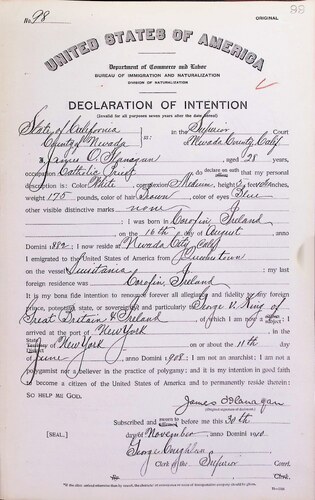 No. 98
ORIGINAL
UNITED STATES OF AMERICA
Department of Commerce and Labor
BUREAU OF IMMIGRATION AND NATURALIZATION
DIVISION OF NATURALIZATION
DECLARATION OF INTENTION
(Invalid for all purposes seven years after the date hereof)
State of California
County of Nevada ss: In the Superior Court of Nevada County, Calif
I, James O'Flanagan, aged 28 years,
occupation Catholic Priest, do declare on oath that my personal
description is: Color White, complexion Medium, height feet inches,
weight 175 pounds, color of hair Brown, color of eyes Blue
other visible distinctive marks none
I was born in Corofin, Ireland
on the 16th day of August, anno
Domini 1882; I now reside at Nevada City, Calif
I emigrated to the United States of America from Queenstown
on the vessel Lusitania; my last
foreign residence was Corofin, Ireland
It is my bona fide intention to renounce forever all allegiance and fidelity to any foreign
prince, potentate, state, or sovereignty, and particularly to George V. King of
Great Britain & Ireland, of which I am now a subject; I
arrived at the port of New York, in the
State of New York on or about the 11th day
of June, anno Domini 1908; I am not an anarchist; I am not a
polygamist nor a believer in the practice of polygamy; and it is my intention in good faith
to become a citizen of the United States of America and to permanently reside therein:
SO HELP ME GOD.
James O'Flanagan
(Original signature of declarant)
Subscribed and sworn to before me this 30th
[SEAL.] day of November, anno Domini 1910
George Coughlan
Clerk of the Superior Court.